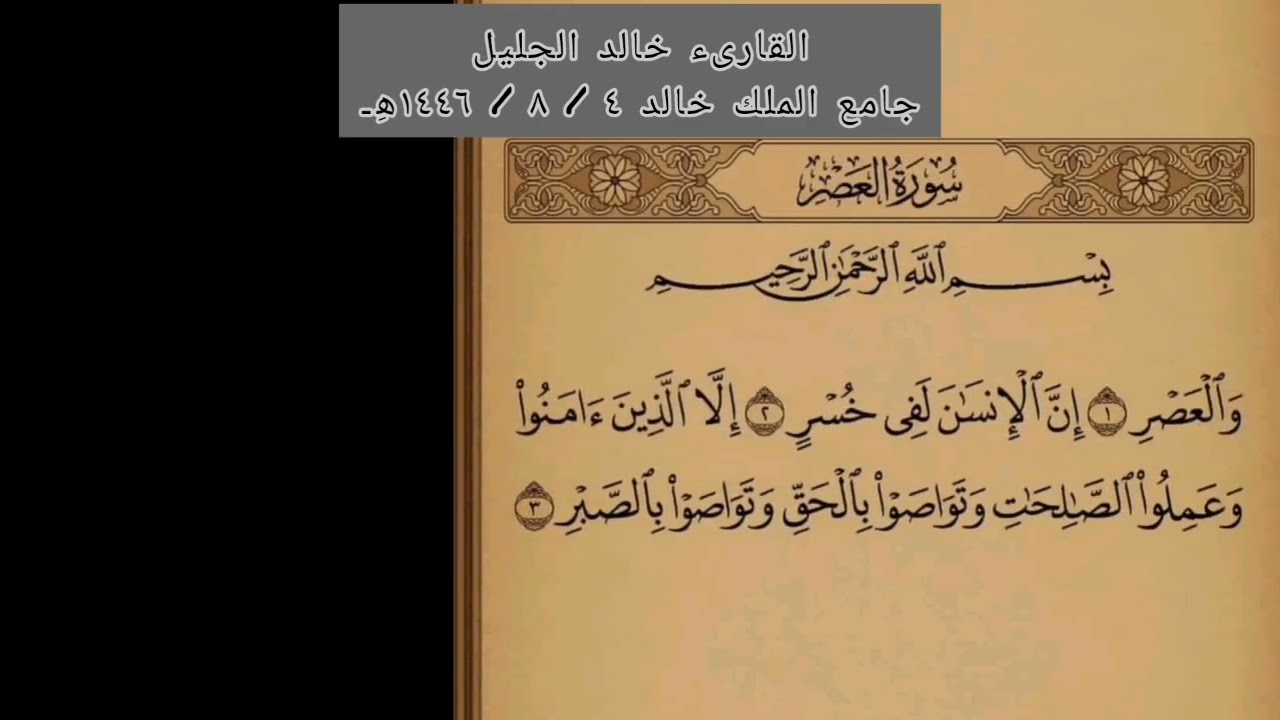 القارىء خالد الجليل
جامع الملك خالد ٤ / ٨ / ١٤٤٦هِـ
سُورَةُ العَصْرِ
بِسْمِ ٱللَّهِ ٱلرَّحْمَٰنِ ٱلرَّحِيمِ
وَٱلْعَصْرِ ١ إِنَّ ٱلْإِنسَٰنَ لَفِى خُسْرٍ ٢ إِلَّا ٱلَّذِينَ ءَامَنُوا۟
وَعَمِلُوا۟ ٱلصَّٰلِحَٰتِ وَتَوَاصَوْا۟ بِٱلْحَقِّ وَتَوَاصَوْا۟ بِٱلصَّبْرِ ٣